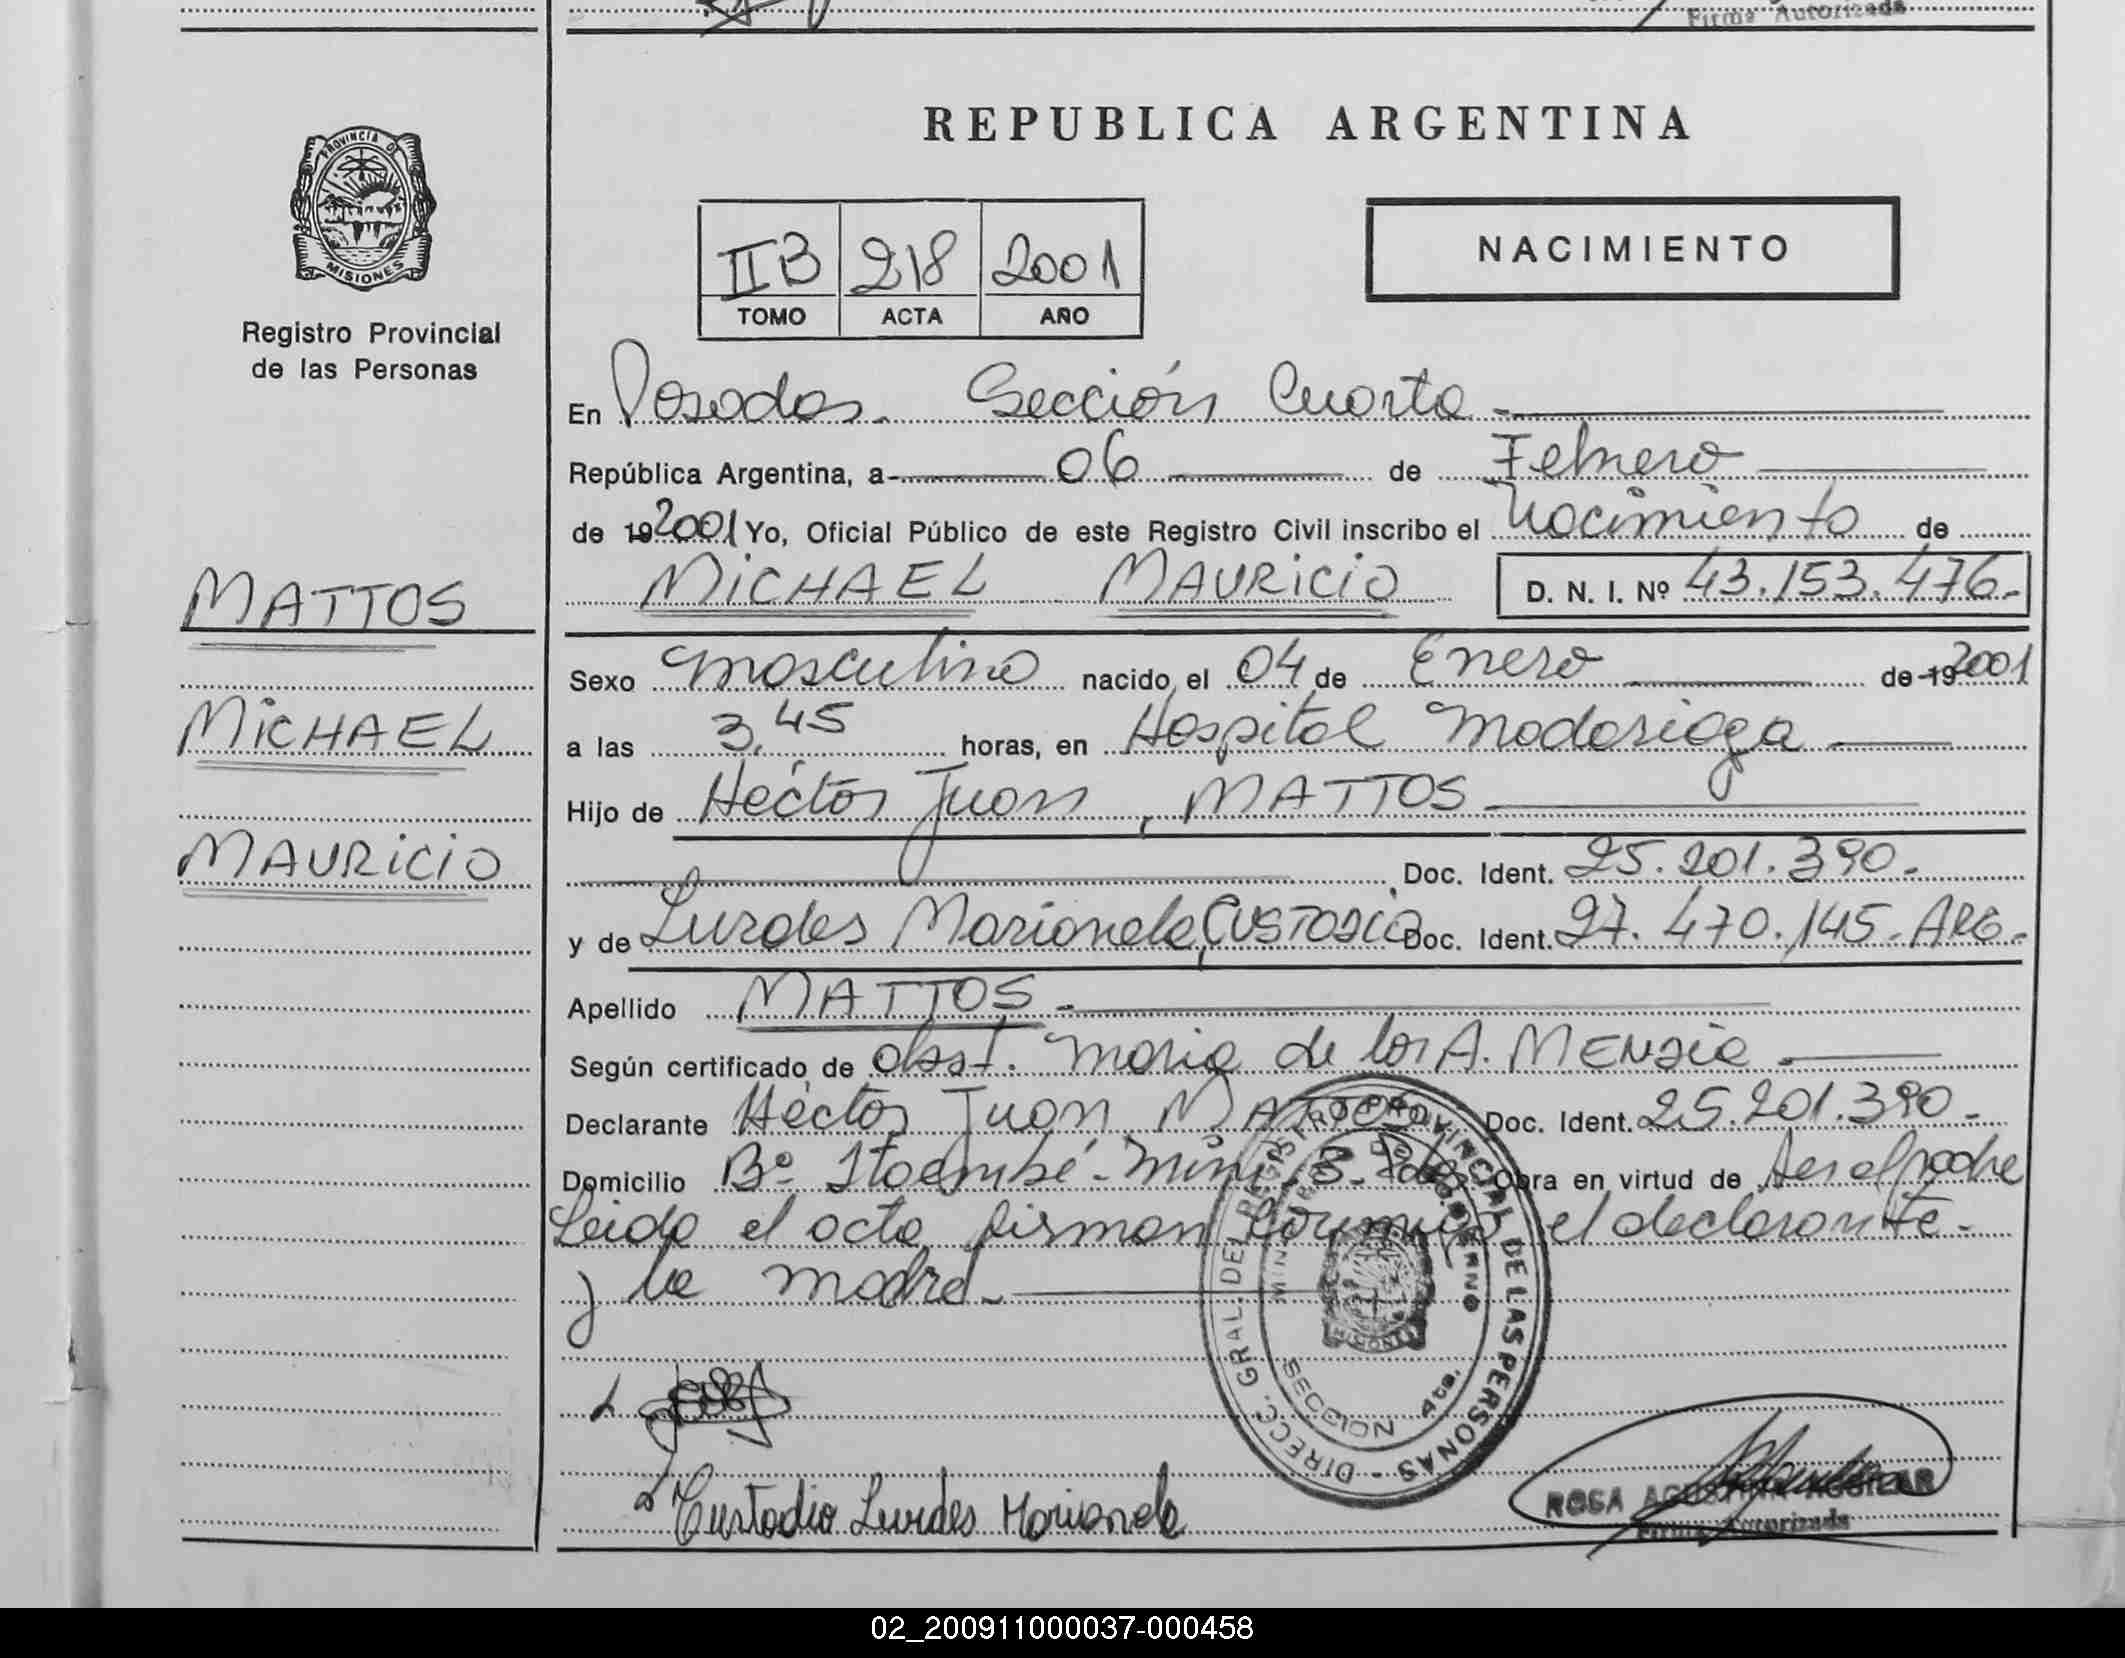 Firma Autorizada
PROVINCIA DE
MISIONES
Registro Provincial
de las Personas
MATTOS
MICHAEL
MAURICIO
REPUBLICA ARGENTINA
IIB 218 2001
TOMO ACTA AÑO
NACIMIENTO
En Posadas. Sección Cuarta.-
República Argentina, a- 06 de Febrero
de 192001 Yo, Oficial Público de este Registro Civil inscribo el Nacimiento de
MICHAEL MAURICIO D. N. I. Nº 43.153.476.-
Sexo masculino nacido el 04 de Enero de 192001
a las 3,45 horas, en Hospital Madariaga
Hijo de Héctor Juan, MATTOS
Doc. Ident. 25.201.390.-
y de Lurdes Marianela, CUSTODIO Doc. Ident. 27.470.145.-ARG.-
Apellido MATTOS.-
Según certificado de obst. Maria de los A.
Declarante Héctor Juan MATTOS Doc. Ident. 25.201.390.-
Domicilio Bº Itaembé-Mini S. Pdas. Obra en virtud de ser el padre
Leida el acta firman conmigo el declarante.-
y la madre.-
DIRECC. GRAL. DEL REGISTRO PROVINCIAL DE LAS PERSONAS -
MINISTERIO DE GOBIERNO
MISIONES
SECCION 4ta.
Custodio Lurdes Marianela
ROSA AGUSTINA AGUILAR
Firma Autorizada
02_200911000037-000458